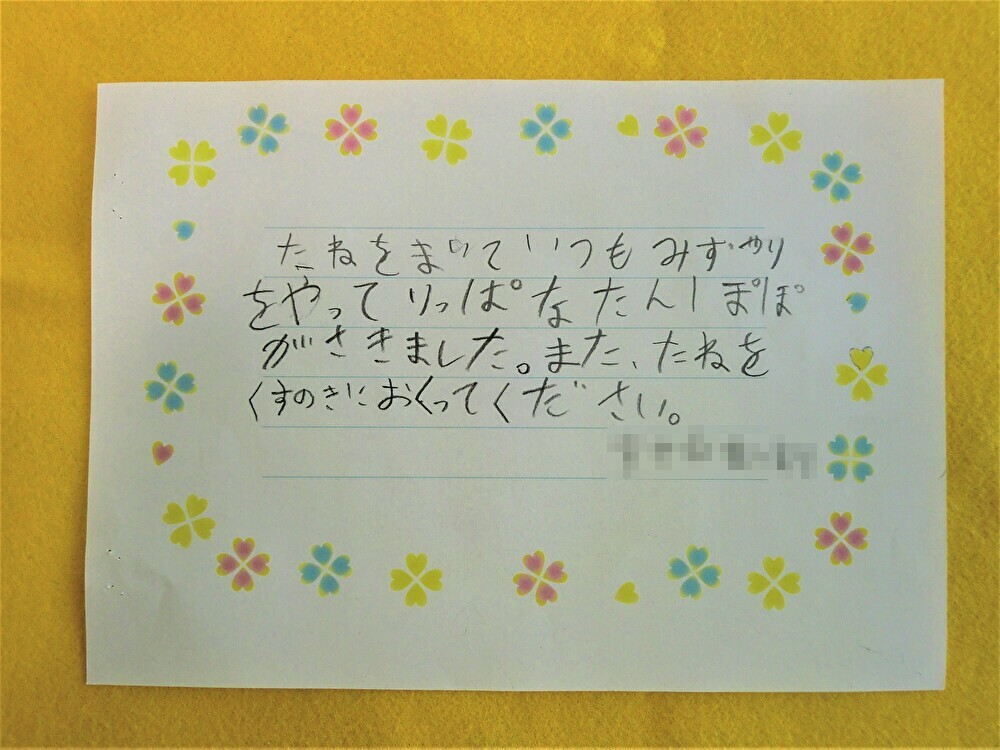 たねをまいていつもみずやり
をやってりっぱなたんぽぽ
がさきました。また、たねを
くすのきにおくってください。